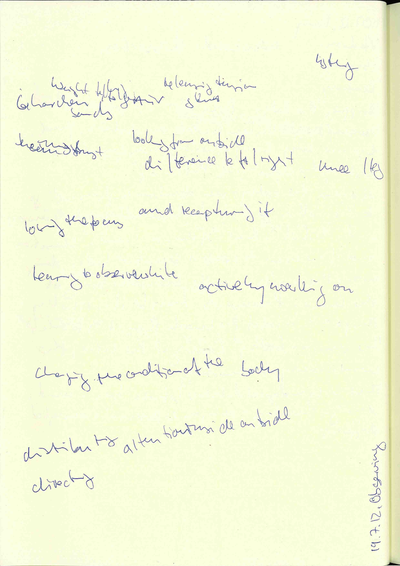 releasing tension
looking from outside
difference left/right knee/leg
losing the focus and recapturing it
learning to observe while actively working on
changing the condition of the body
distributing attention inside outside
directing
19.7.12, Observing